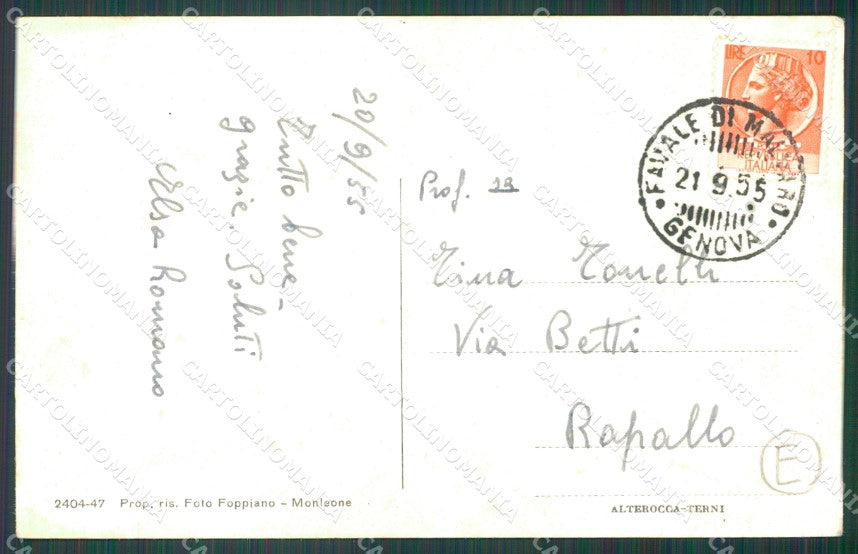 20/9/55
Tutto bene -
grazie. Saluti
Elsa Romano
2404-47 Prop. ris. Foto Foppiano - Monleone
LIRE 10
ITALIANA
FAVALE DI MALVARO
21.9.55
GENOVA
Prof.
Tina Tonelli
Via Betti
Rapallo
E
ALTEROCCA-TERNI
CARTOLINOMANIA